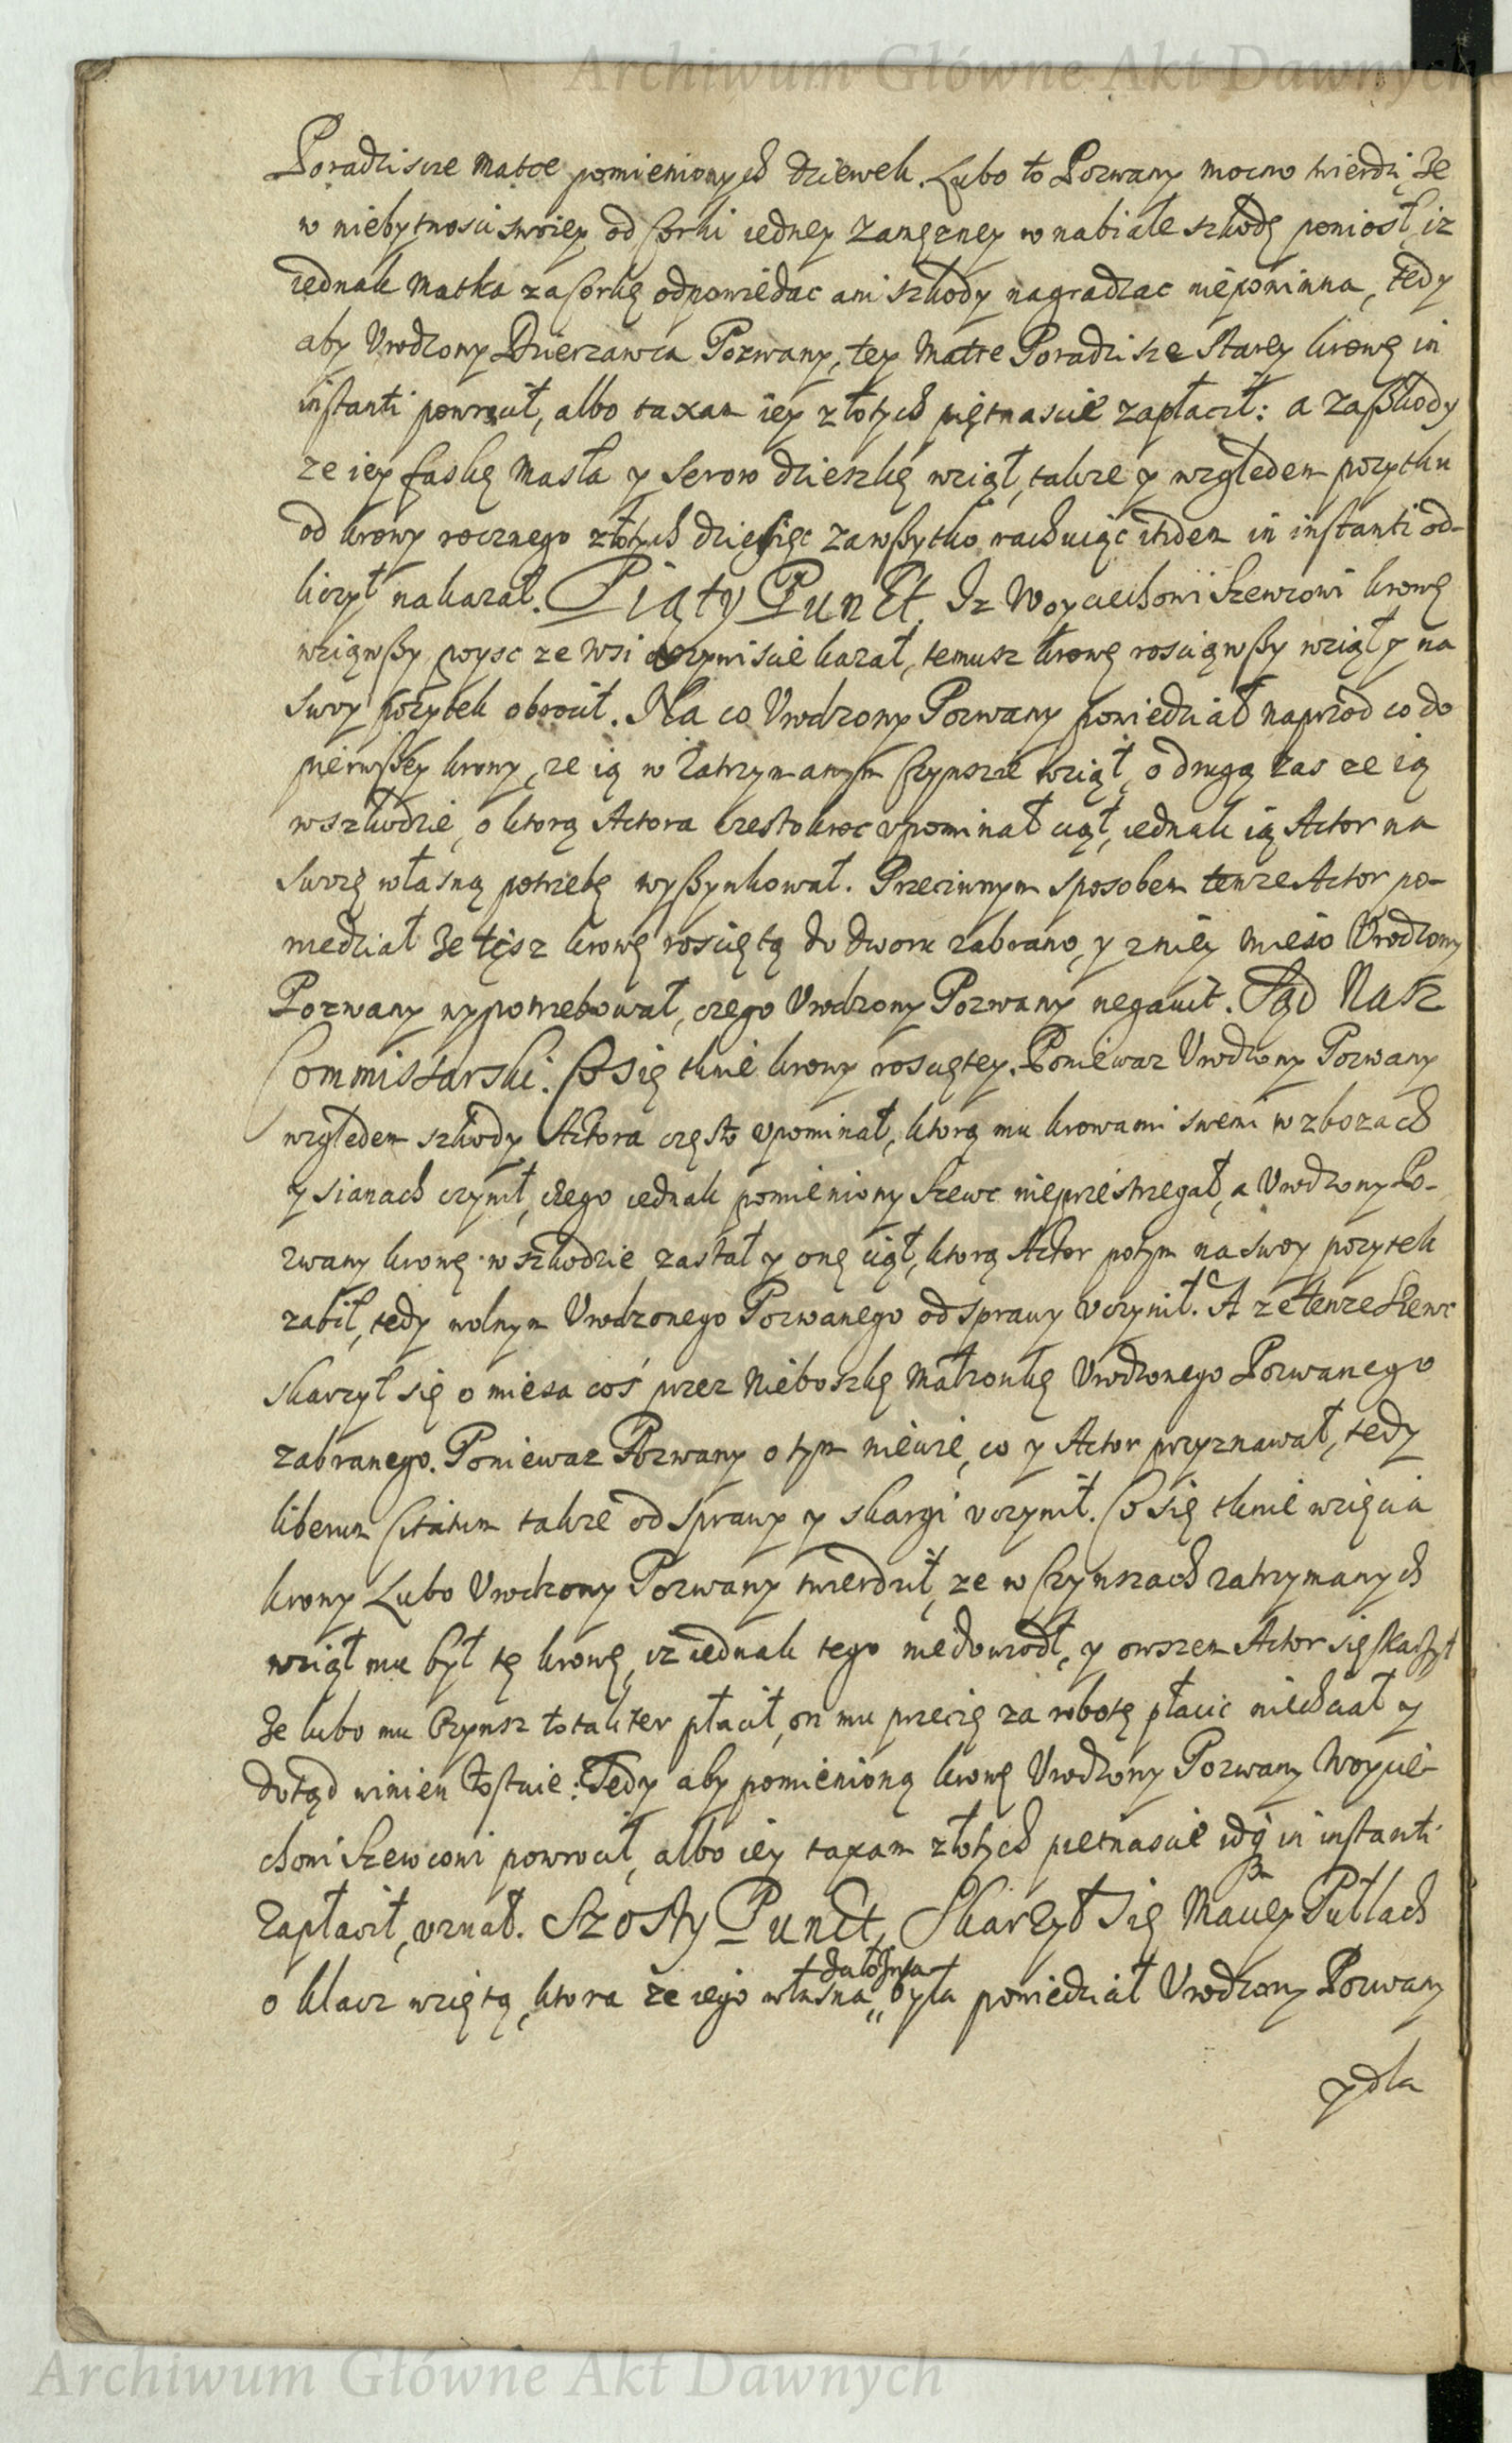 Archiwum Główne Akt Dawnych
Poradzisze Matce pomienionych dziewek. Lubo to Pozwany mocno twierdzi, że
w niebytnosci swoiey od Corki iedney Zamęzney w nabiale szkodę poniosł, iz
iednak Matka za Corkę odpowiedac ani szkody nagradzac niepowinna, tedy
aby Vrodzony Dzierzawca Pozwany, tey Matce Poradzisze Starey krowę in
instanti powrocił, albo taxam iey złotych piętnascie zapłacił: a za szkody
ze iey faskę Masła y Serow dzieszkę wziął, takze y względem pozytku
od krowy rocznego złotych dziesięc za wszytko rachuiąc itidem in instanti od-
liczył nakazał. Piąty Punct. Iz Woyciechowi Szewcowi krowę
wziąwszy poysc ze wsi oczywiscie kazał, temusz krowę rosciąwszy wziął y na
swoy pozytek obrocił. Na co Vrodzony Pozwany powiedział naprzod co do
pierwszey krowy, ze ią w Zatrzymanym Czynszie wziął, o drugą zas ze ią
w szkodzie, o ktorą Actora czestokroc vpominał ciął, iednak ią Actor na
swoię własną potrzebę wyszynkował. Przeciwnym sposobem tenze Actor po-
wiedział że tęsz krowę rosciętą do dworu zabrano, y z niey mięso Vrodzony
Pozwany wypotrzebował, czego Vrodzony Pozwany negavit. Sąd Nasz
Commissarski. Co się tknie krowy rosciętey. Poniewaz Vrodzony Pozwany
względem szkody Actora często vpominał, ktorą mu krowami swemi w zbozach
y sianach czynił, czego iednak pomieniony Szewc nieprzestrzegał, a Vrodzony Po-
zwany krowę w szkodzie zastał y onę ciął, ktorą Actor potym na swoy pozytek
zabił, tedy wolnym Vrodzonego Pozwanego od sprawy vczynił. A ze tenze Szewc
skarzył się o miesa coś przez Nieboszkę Małzonkę Vrodzonego Pozwanego
zabranego. Poniewaz Pozwany o tym niewie, co y Actor przyznawał, tedy
liberum Citatum takze od sprawy y skargi vczynił. Co się tknie wzięcia
krowy Lubo Vrodzony Pozwany twierdził, ze w Czynszach zatrzymanych
wziął mu był tę krowę, iz iednak tego niedowiodł, y owszem Actor się skarzył
Że lubo mu Czynsz totaliter płacił, on mu przecię za robotę płacic niechciał y
dotąd winien zostaie: Tedy aby pomienioną krowę Vrodzony Pozwany Woycie-
chowi Szewcowi powrocił, albo iey taxam złotych pietnascie in instanti
Zapłacił, vznał. Szosty Punct, Skarzył się Maciey Pułlach
o klacz wziętą, ktora że iego własna była powiedział Vrodzony Pozwany
y dla
Archiwum Główne Akt Dawnych